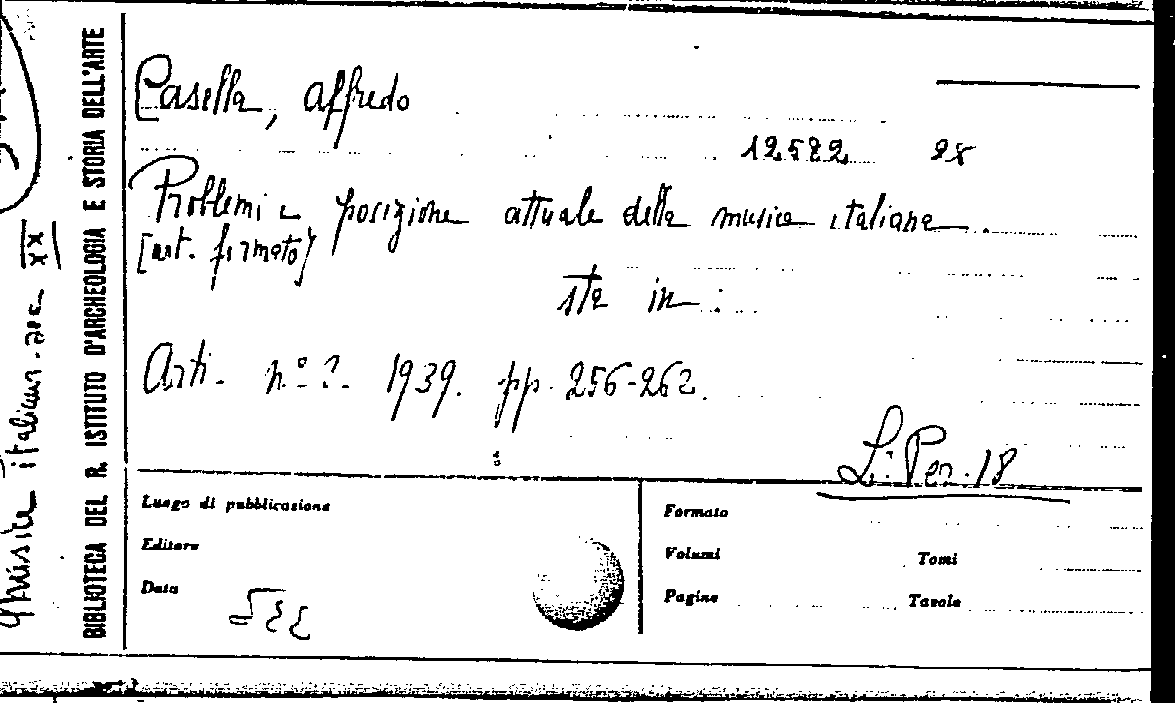 Casella, Alfredo
12582 28
Problemi e posizione attuale della musica italiana.
[art. firmato]
sta in:
Arti. n.° 2. 1939. pp. 256-262.
L. Per. 18
Luogo di pubblicazione
Editore
Data
Formato
Volumi Tomi
Pagine Tavole
BIBLIOTECA DEL R. ISTITUTO D'ARCHEOLOGIA E STORIA DELL'ARTE
italiana. sec. XX